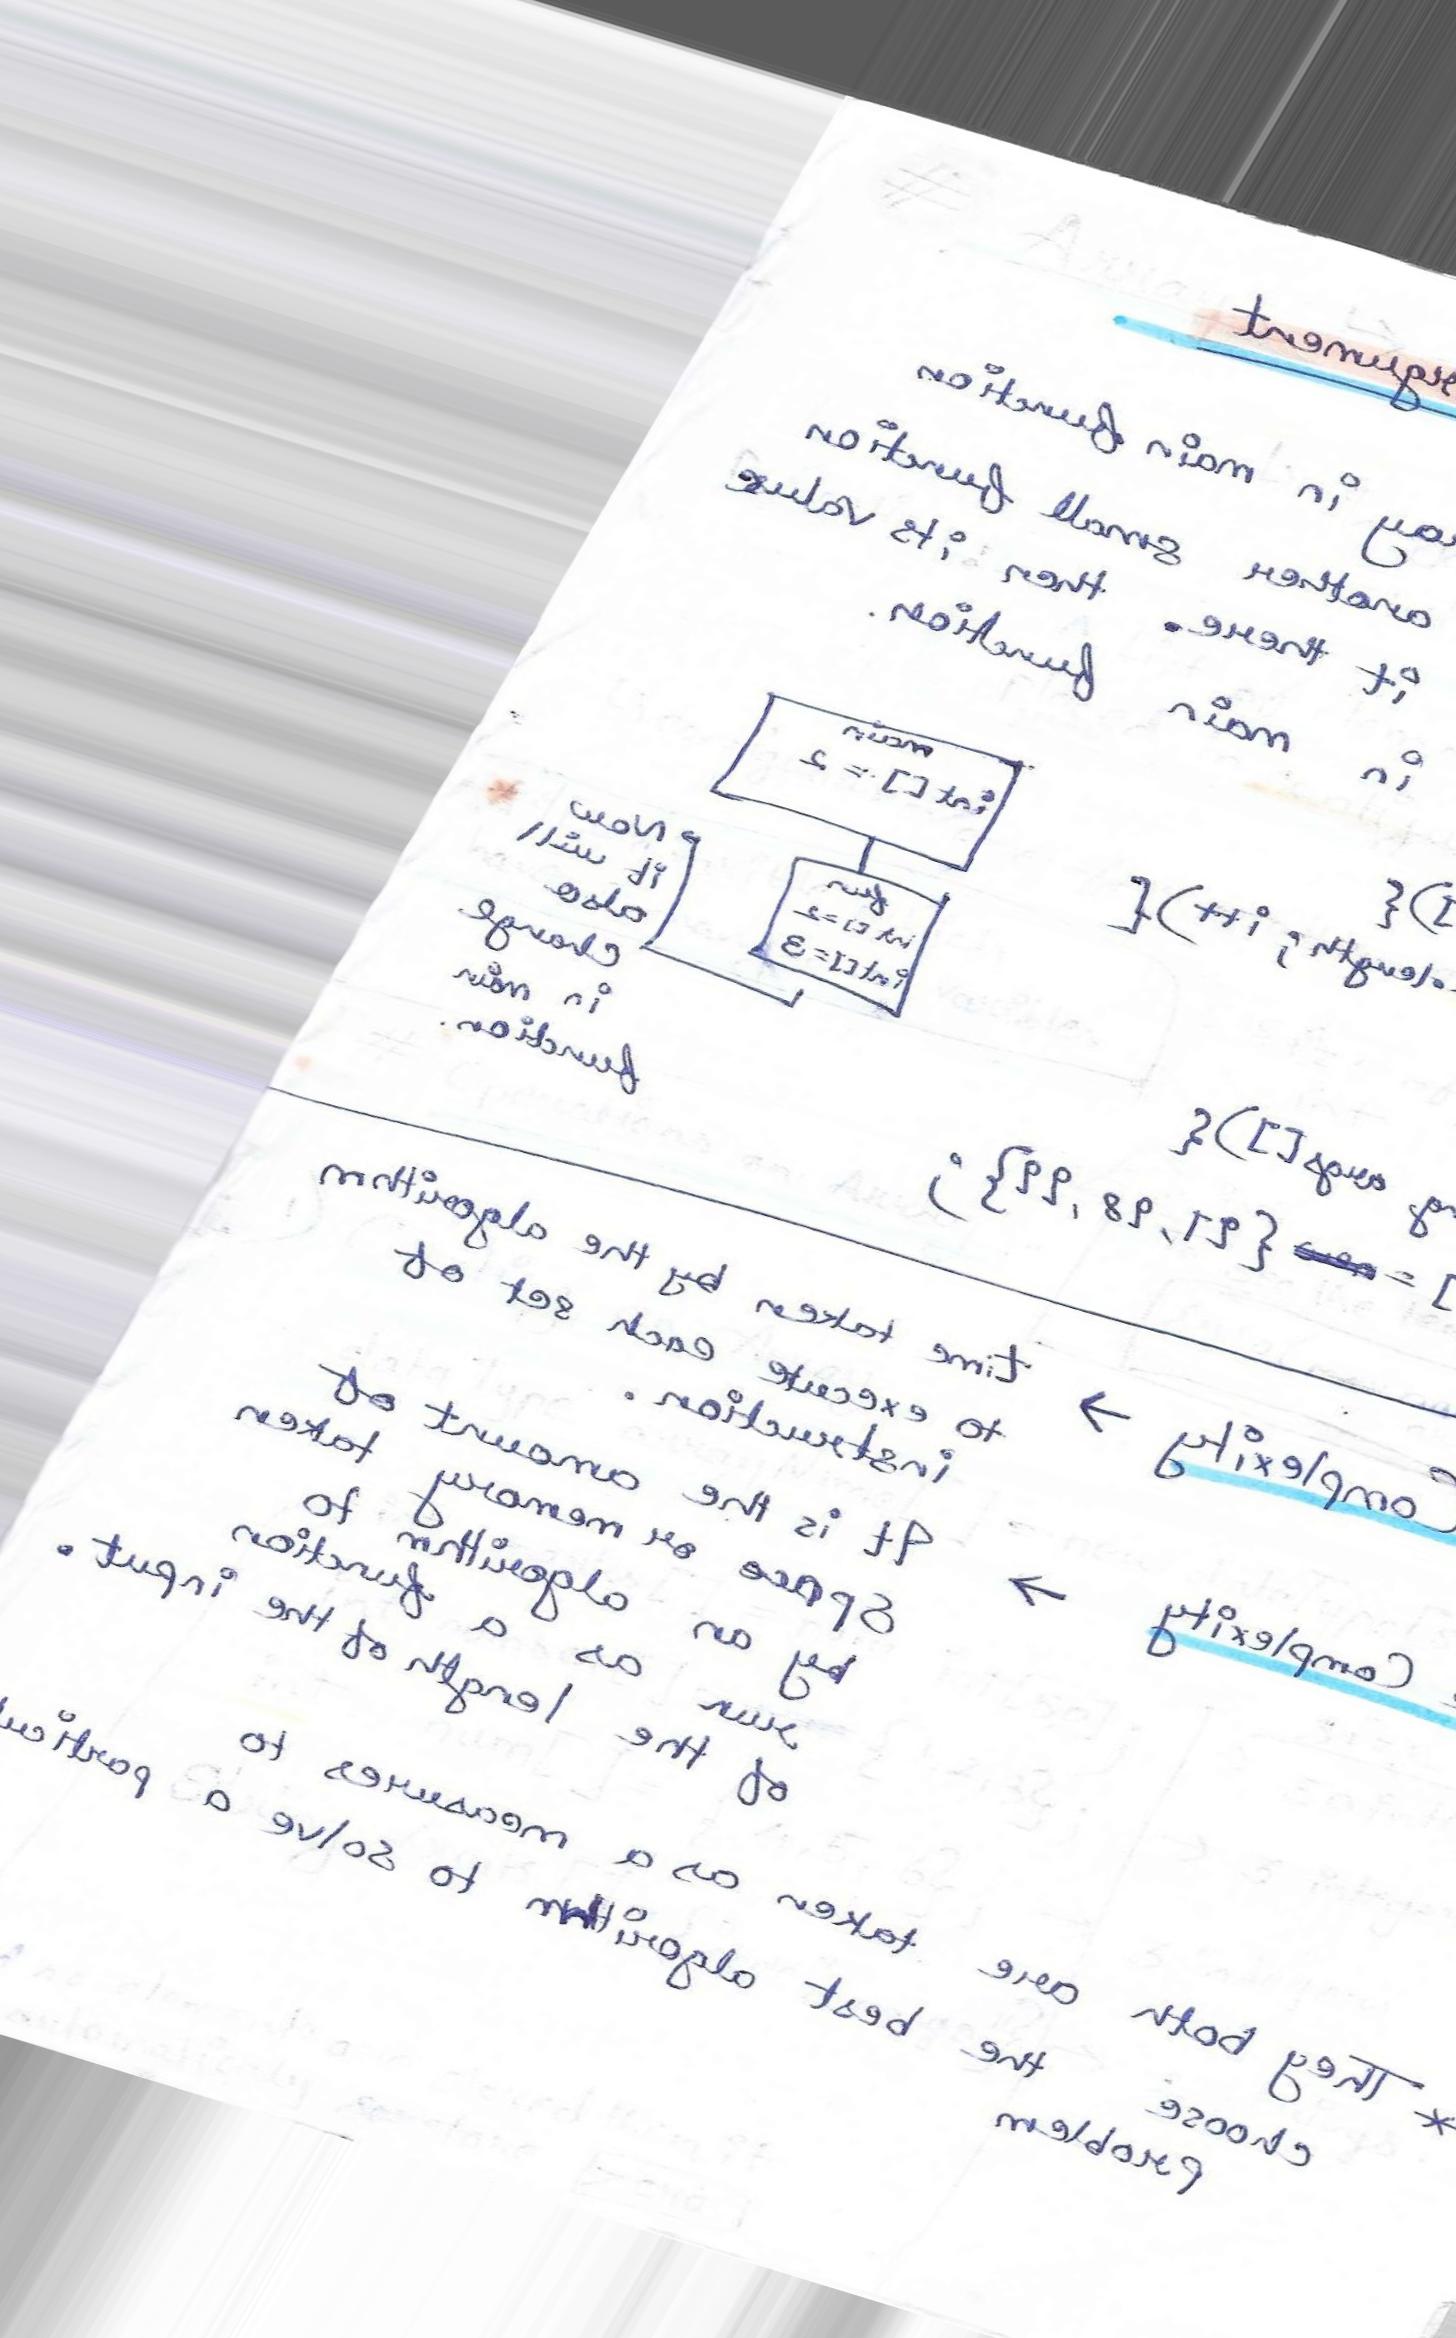 argument
in main function
another small function
it there. then its value
in main function.
main
int [] = 2
fun
int [] = 2
int [] = 3
Now
it will
also
change
in main
function.
]){
.length; i++){
args[]){
] = {97, 98, 99};
Complexity → time taken by the algorithm
to execute each set of
instruction.
Complexity → It is the amount of
Space or memory taken
by an algorithm to
run as a function
of the length of the input.
* They both are taken as a measures to
choose the best algorithm to solve a
problem